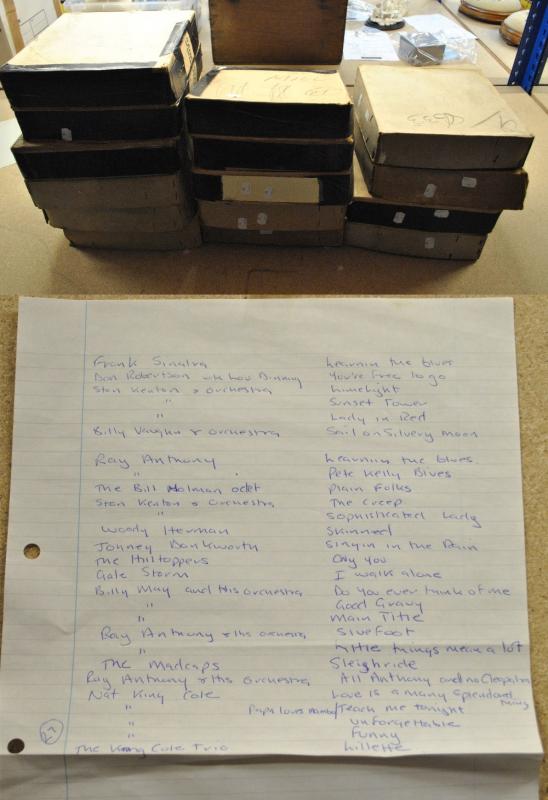 Frank Sinatra Learnin the blues
Don Robertson with Lou Dinning You're free to go
Stan Kenton & orchestra Limelight
" Sunset Tower
" Lady in Red
Billy Vaughn & orchestra Sail on Silvery moon
Ray Anthony Learning the blues.
" Pete Kelly Blues
The Bill Holman octet Plain Folks
Stan Kenton & Orchestra The Creep
" Sophisticated Lady
Woody Herman Skinned
Johney Dankworth Singin in the Rain
The Hilltoppers Only you
Gale Storm I walk alone
Billy May and His orchestra Do you ever think of me
" Good Gravy
" Main Title
Ray Anthony & His orchestra Sluefoot
" Little things mean a lot
The Madcaps Sleighride
Ray Anthony & His orchestra All Anthony and no Cleopatra
Nat King Cole Love is a many Splendored Thing
" Papa loves mambo/Teach me tonight
" unforgettable
" Funny
The King Cole Trio Lillette